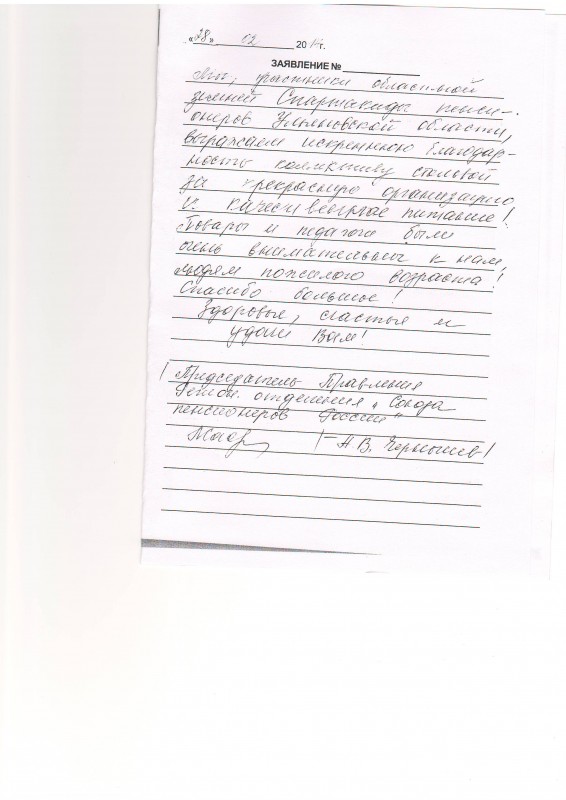 «28» 02 20 г.
ЗАЯВЛЕНИЕ №
Мы, участники областной
зимней Спартакиды пенси-
онеров Ульяновской области,
выражаем искреннюю благодар-
ность коллективу столовой
за прекрасную организацию
и качественное питание!
Повары и педагоги были
очень внимательны к нам,
людям пожилого возраста!
Спасибо большое!
Здоровья, счастья и
удачи Вам!
Председатель Правления
Регион. отделения „Союза
пенсионеров России"
/А В. Чернышев/